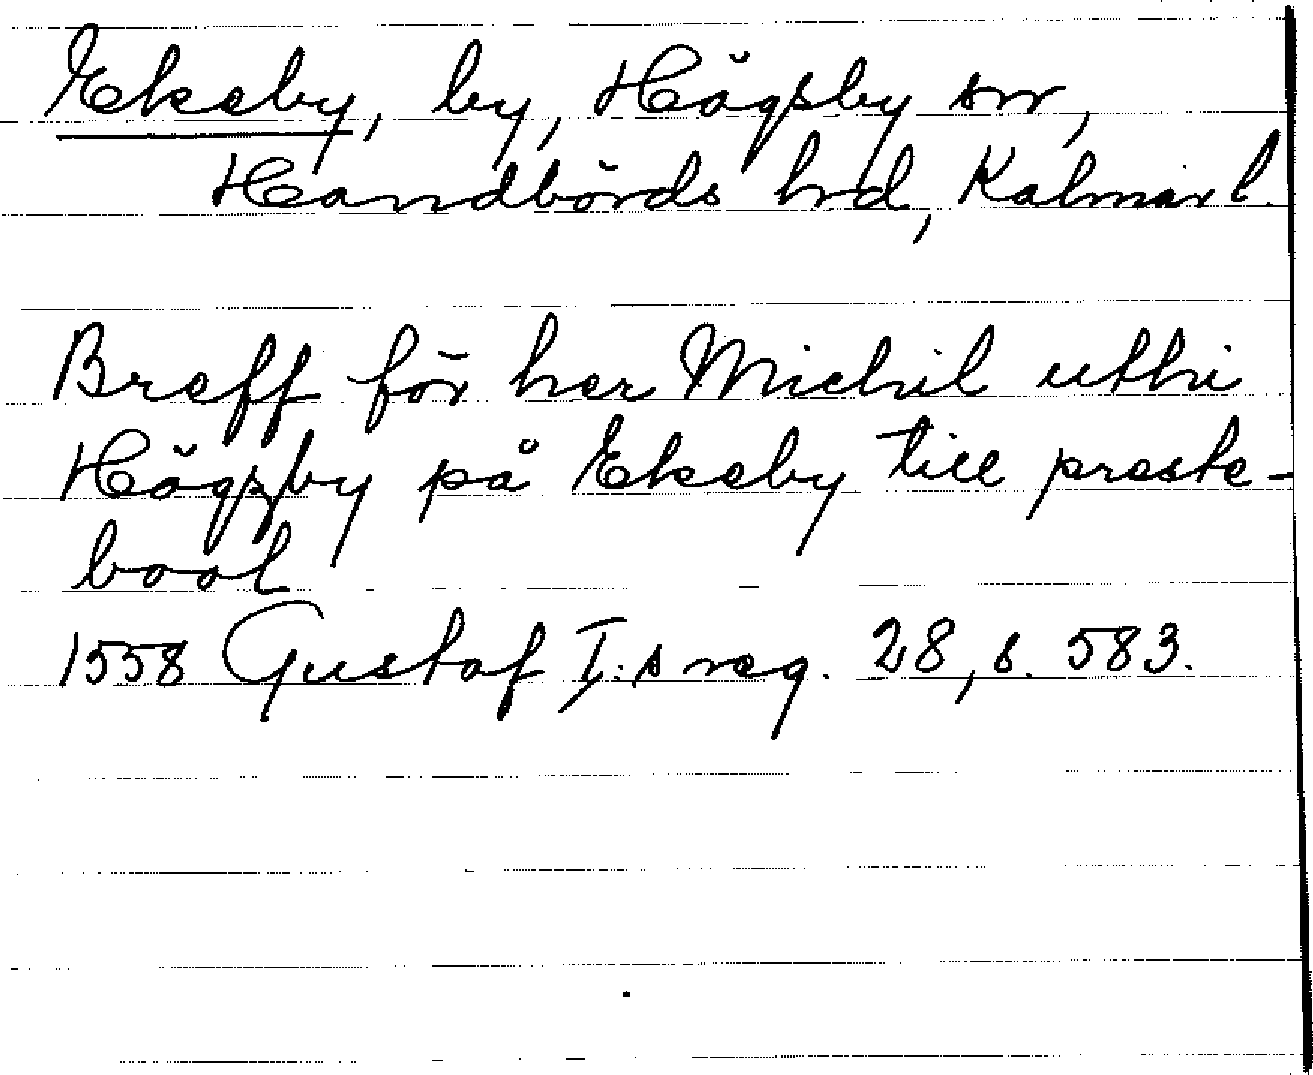 Ekeby, by, Högsby sn,
Handbörds hrd, Kalmar l.
Breff för her Michil uthi
Högxby på Ekeby till preste-
bool
1558 Gustaf I:s reg. 28, s. 583.